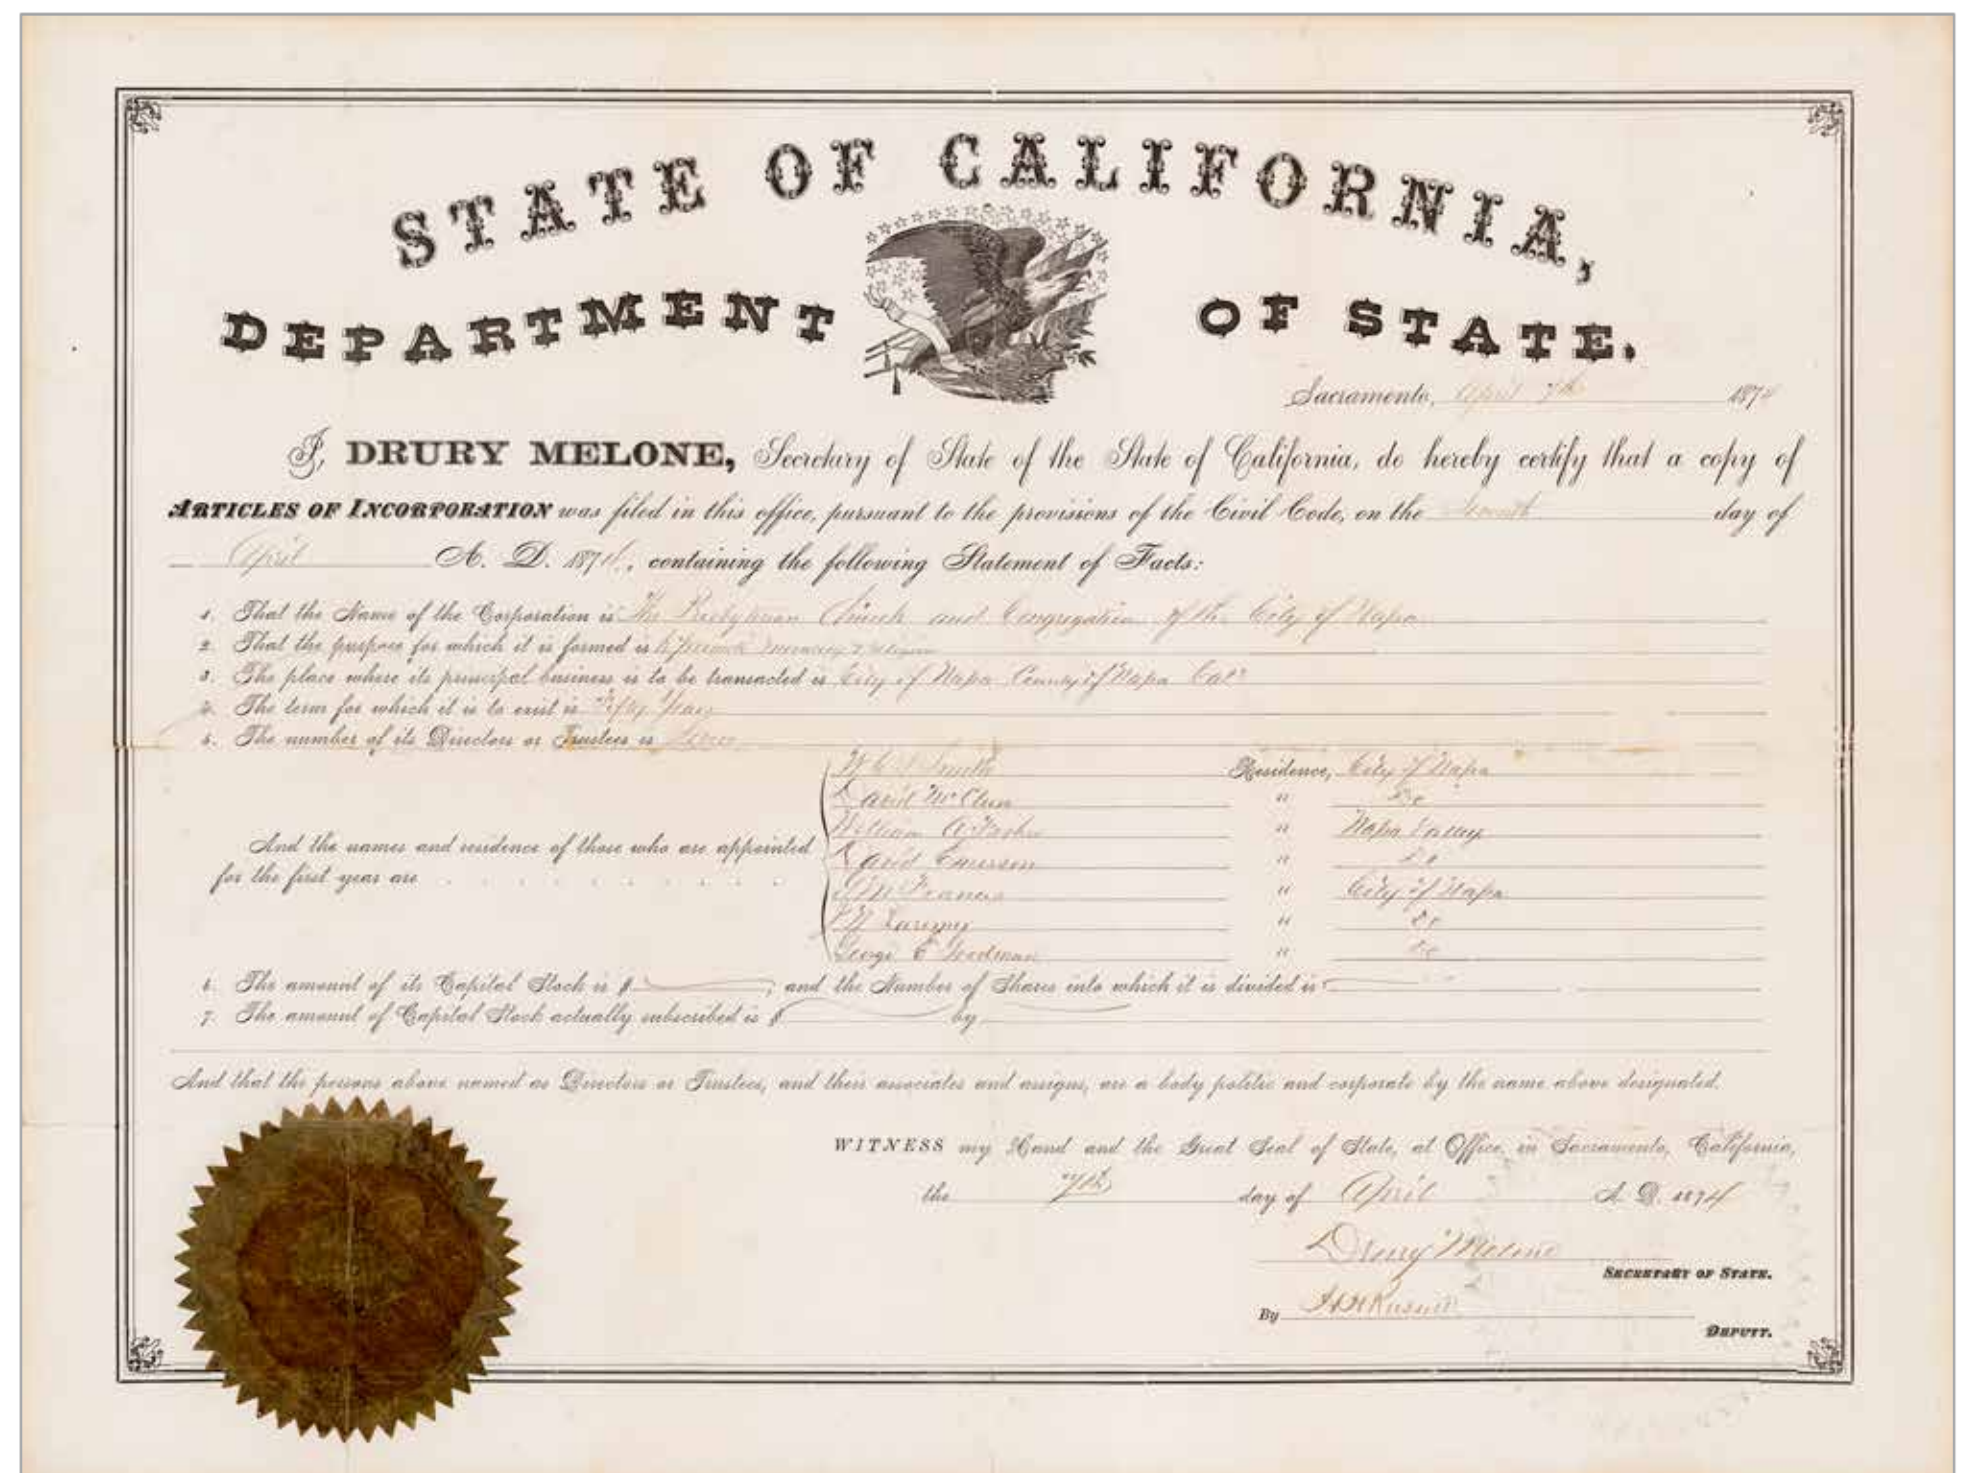 STATE OF CALIFORNIA,
DEPARTMENT OF STATE.
Sacramento, April 7th 1874
I, DRURY MELONE, Secretary of State of the State of California, do hereby certify that a copy of
ARTICLES OF INCORPORATION was filed in this office, pursuant to the provisions of the Civil Code, on the Seventh day of
April A. D. 1874, containing the following Statement of Facts:
1. That the Name of the Corporation is The Presbyterian Church and Congregation of the City of Napa
2. That the purpose for which it is formed is
3. The place where its principal business is to be transacted is City of Napa County of Napa Cal
4. The term for which it is to exist is Fifty Years
5. The number of its Directors or Trustees is Seven
Smith Residence, City of Napa
David " Do
William A " Napa Valley
David Emerson " Do
Francis " City of Napa
" Do
George E Goodman " Do
And the names and residence of those who are appointed
for the first year are
6. The amount of its Capital Stock is $ ; and the Number of Shares into which it is divided is
7. The amount of Capital Stock actually subscribed is $ by
And that the persons above named as Directors or Trustees, and their associates and assigns, are a body politic and corporate by the name above designated.
WITNESS my Hand and the Great Seal of State, at Office, in Sacramento, California,
the 7th day of April A. D. 1874
Drury Melone
SECRETARY OF STATE.
By
DEPUTY.